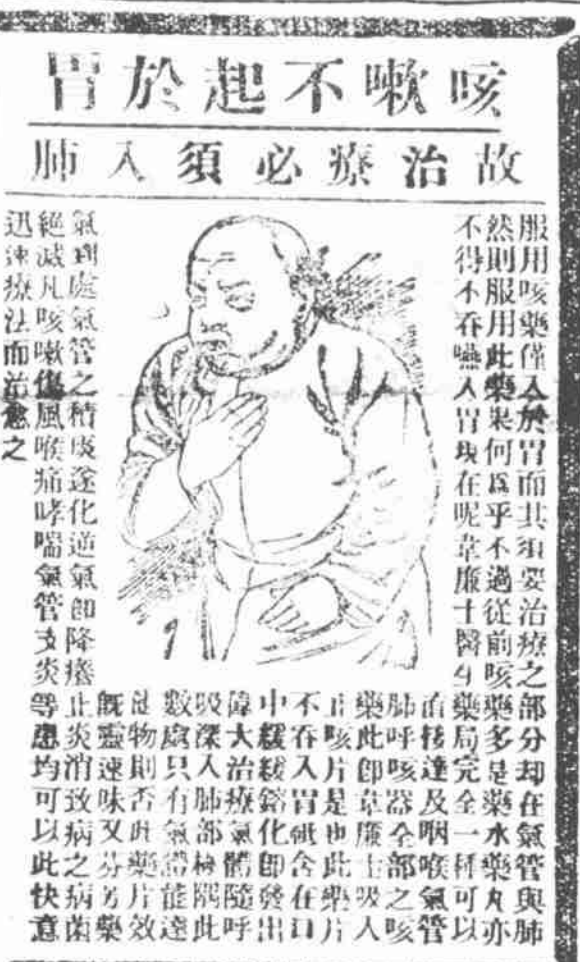 咳嗽不起於胃
故治療必須入肺
服用咳藥僅入於胃而其須要治療之部分却在氣管與肺
然則服用此藥果何爲乎不過從前咳藥多是藥水藥丸亦
不得不吞嚥入胃現在呢韋廉士醫生藥局完全一種可以
直接達及咽喉氣管
肺呼咳器全部之咳
藥此卽韋廉士吸入
止咳片是也此藥片
不吞入胃祗含在口
中緩緩鎔化卽發出
偉大治療氣體隨呼
吸深入肺部極隅此
數處只有氣體能達
他物則否此藥片效
旣靈速味又芬芳藥
氣到處氣管之積痰遂化逆氣卽降癢止炎消致病之病菌
絕滅凡咳嗽傷風喉痛哮喘氣管支炎等患均可以此快意
迅速療法而治愈之